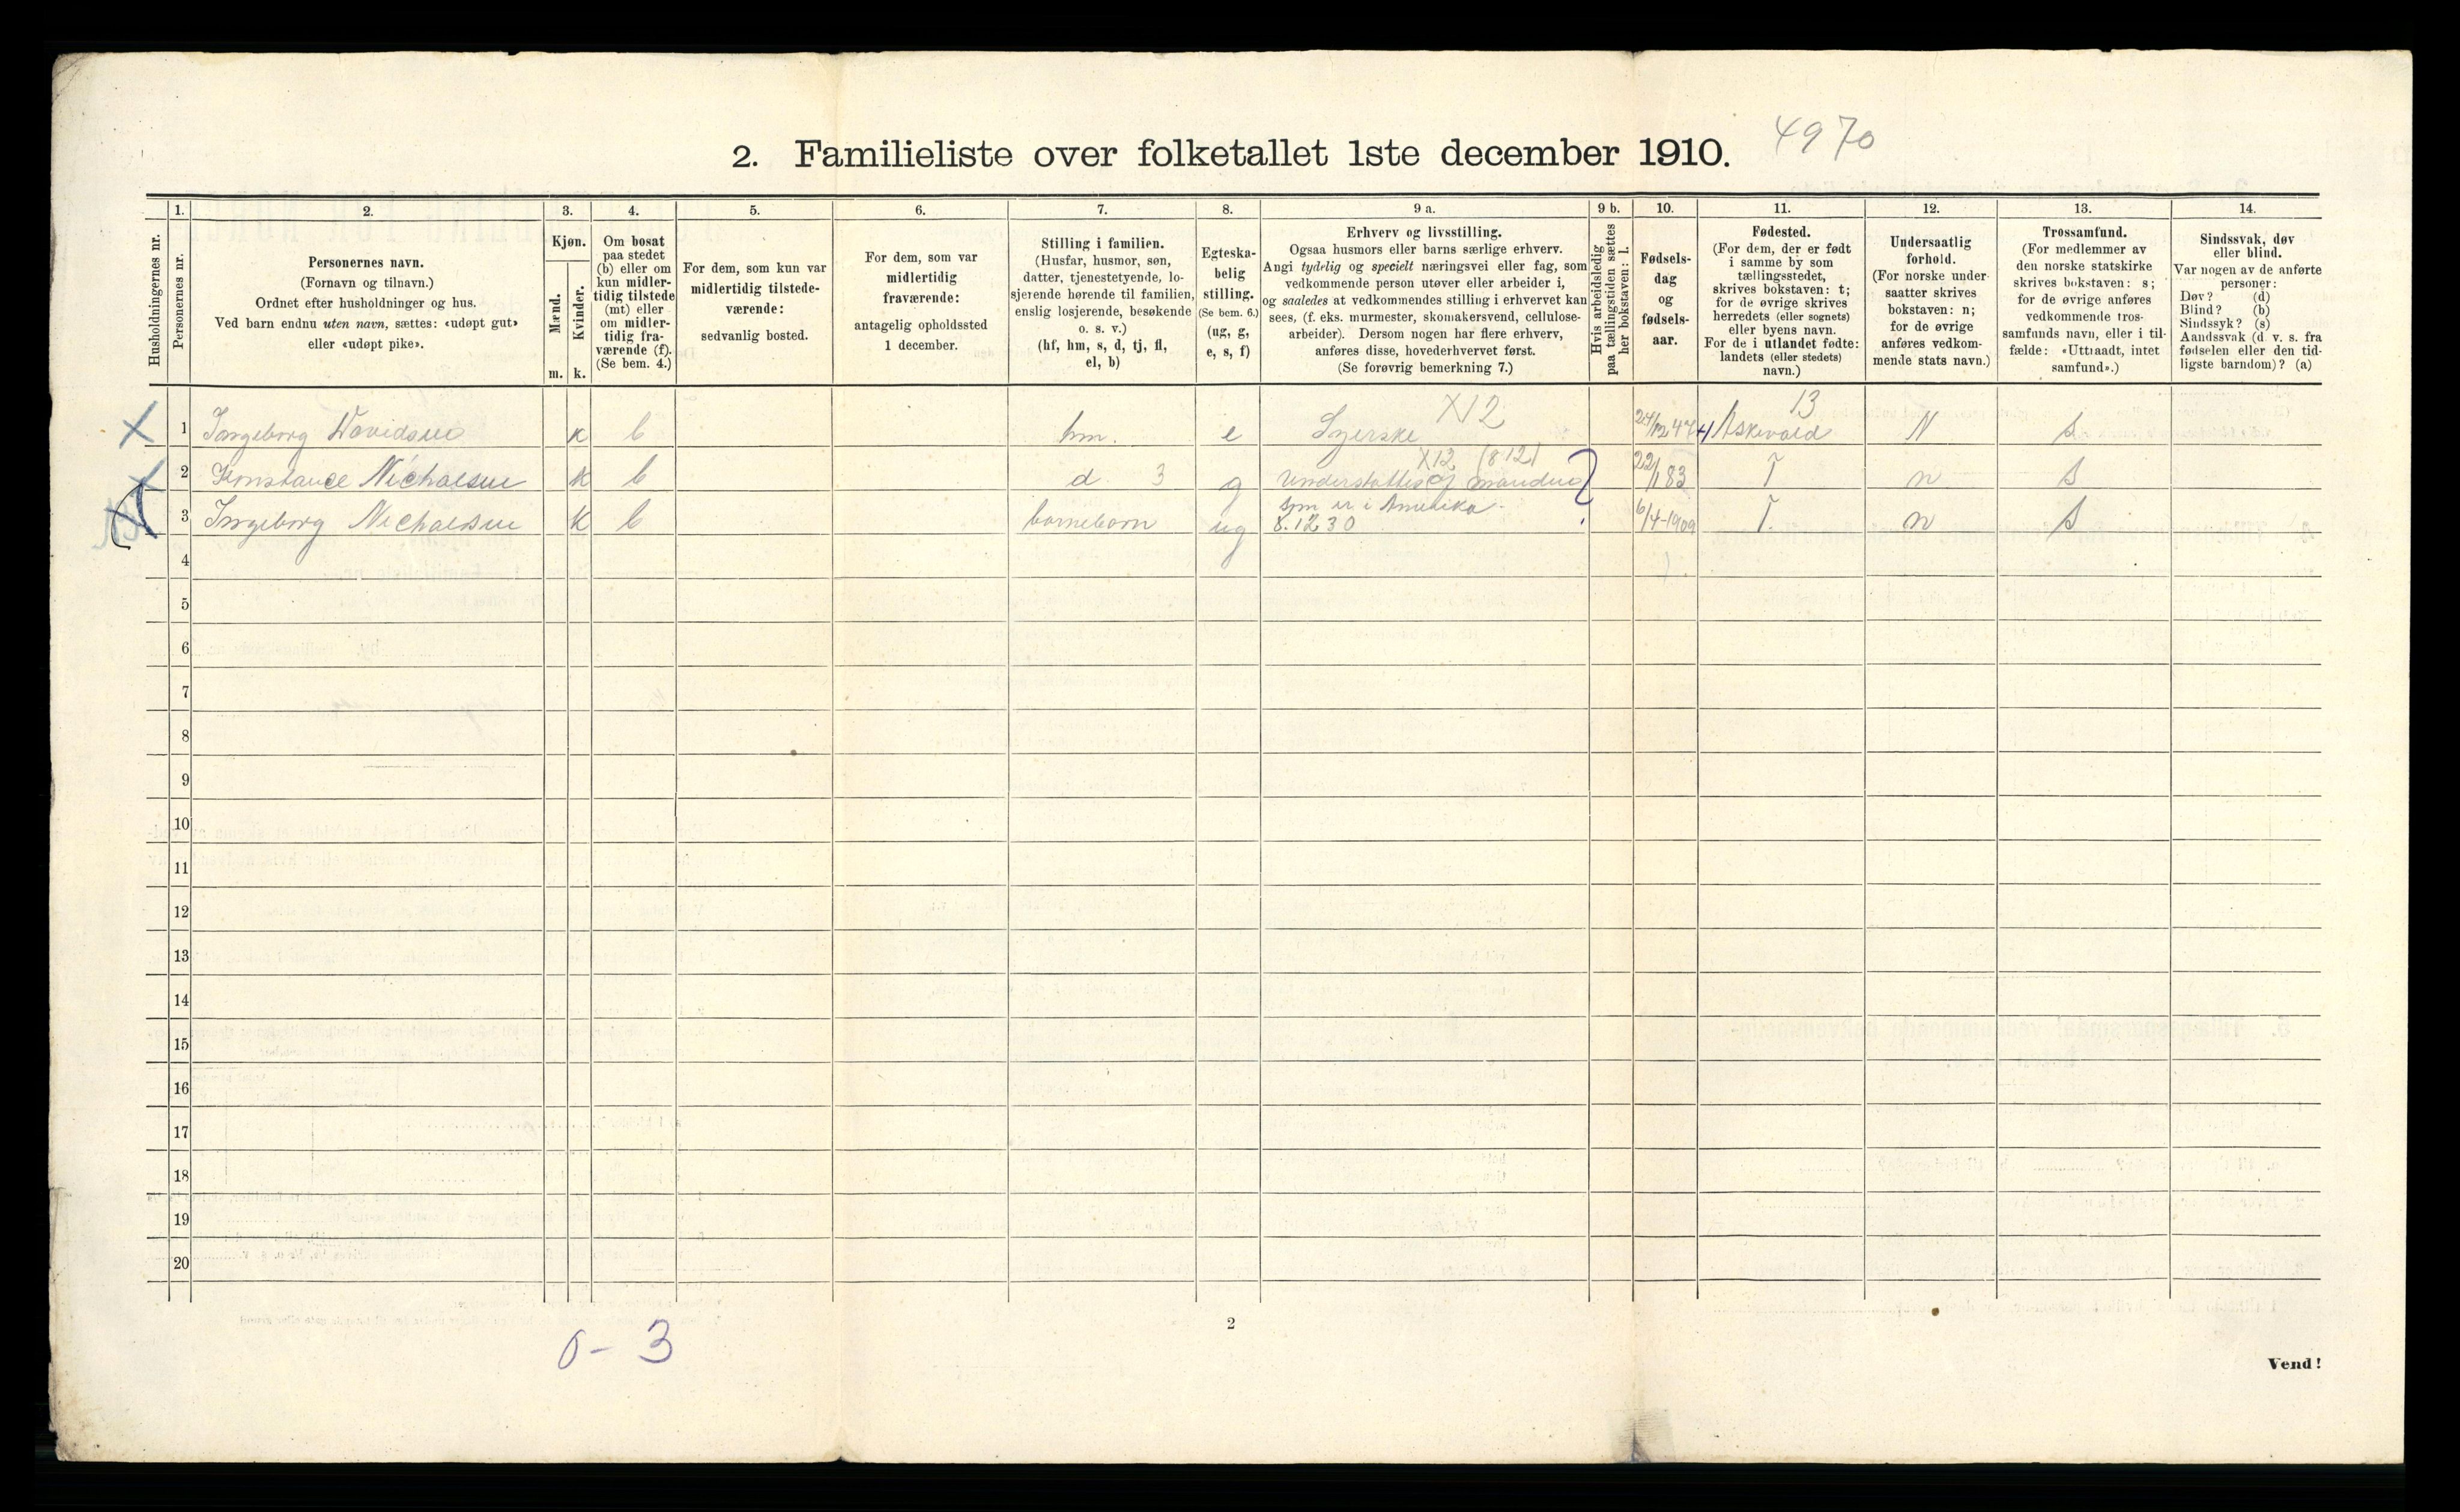 2. Familieliste over folketallet 1ste december 1910.
4970
Husholdningernes nr.
1.
Personernes nr.
2.
Personernes navn.
(Fornavn og tilnavn.)
Ordnet efter husholdninger og hus.
Ved barn endnu uten navn, sættes: «udøpt gut»
eller «udøpt pike».
3.
Kjøn.
Mænd.
Kvinder.
m. k.
4.
Om bosat
paa stedet
(b) eller om
kun midler-
tidig tilstede
(mt) eller
om midler-
tidig fra-
værende (f).
(Se bem. 4.)
5.
For dem, som kun var
midlertidig tilstede-
værende:
sedvanlig bosted.
6.
For dem, som var
midlertidig
fraværende:
antagelig opholdssted
1 december.
7.
Stilling i familien.
(Husfar, husmor, søn,
datter, tjenestetyende, lo-
sjerende hørende til familien,
enslig losjerende, besøkende
o. s. v.)
(hf, hm, s, d, tj, fl,
el, b)
8.
Egteska-
belig
stilling.
(Se bem. 6.)
(ug, g,
e, s, f)
9 a.
Erhverv og livsstilling.
Ogsaa husmors eller barns særlige erhverv.
Angi tydelig og specielt næringsvei eller fag, som
vedkommende person utøver eller arbeider i,
og saaledes at vedkommendes stilling i erhvervet kan
sees, (f. eks. murmester, skomakersvend, cellulose-
arbeider). Dersom nogen har flere erhverv,
anføres disse, hovederhvervet først.
(Se forøvrig bemerkning 7.)
9 b.
Hvis arbeidsledig
paa tællingstiden sættes
her bokstaven: l.
10.
Fødsels-
dag
og
fødsels-
aar.
11.
Fødested.
(For dem, der er født
i samme by som
tællingsstedet,
skrives bokstaven: t;
for de øvrige skrives
herredets (eller sognets)
eller byens navn.
For de i utlandet fødte:
landets (eller stedets)
navn.)
12.
Undersaatlig
forhold.
(For norske under-
saatter skrives
bokstaven: n;
for de øvrige
anføres vedkom-
mende stats navn.)
13.
Trossamfund.
(For medlemmer av
den norske statskirke
skrives bokstaven: s;
for de øvrige anføres
vedkommende tros-
samfunds navn, eller i til-
fælde: «Uttraadt, intet
samfund».)
14.
Sindssvak, døv
eller blind.
Var nogen av de anførte
personer:
Døv? (d)
Blind? (b)
Sindssyk? (s)
Aandssvak (d. v. s. fra
fødselen eller den tid-
ligste barndom)? (a)
X12 13
1 Ingeborg Davidsen k b hm. e Syerske 24/12 47 Askevold N S
X12 (812)
2 Konstance Nichaelsen k b d 3 g Understøttes af manden 22/1 83 T n S
som er i Amerika.
3 Ingeborg Nichaelsen k b barnebarn ug 8.1230 6/4-1909 T. n S
4
5
6
7
8
9
10
11
12
13
14
15
16
17
18
19
20
0-3
2
Vend!